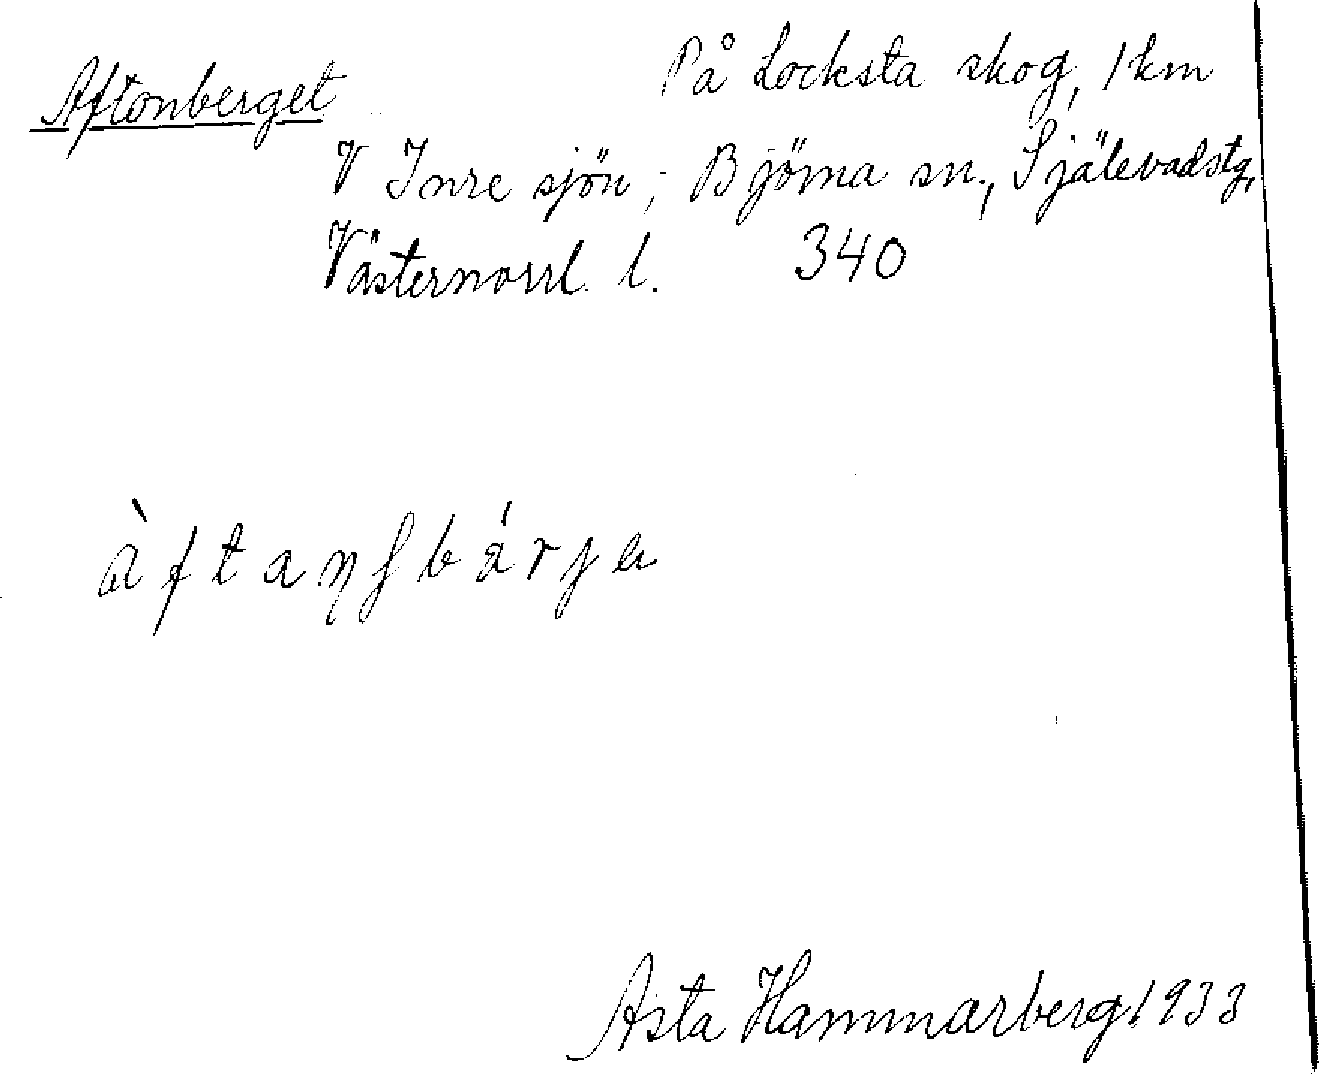 Aftonberget På Locksta skog, 1 km
V Inre sjön; Björna sn., Själevadstg,
Västernorrl. l. 340
àftaŋſbárje
Asta Hammarberg 1933